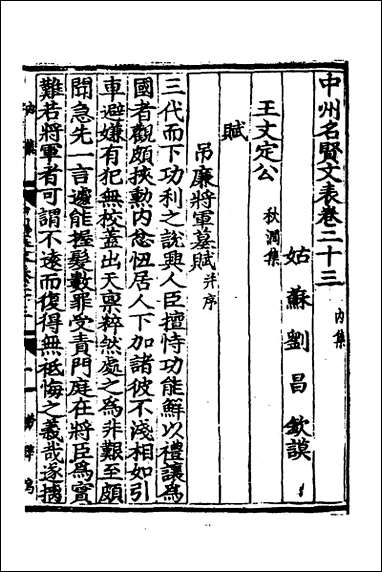 中州名賢文表卷二十三 內集
姑蘇劉昌欽謨
王文定公 秋澗集
賦
吊廉將軍墓賦 并序
三代而下功利之說興人臣擅恃功能鮮以禮讓為
國者觀頗挾勳內忿忸居人下加諸彼不淺相如引
車避嫌有犯無校蓋出天稟粹然處之為非艱至頗
聞急先一言遽能握髮數罪受責門庭在將臣為實
難若將軍者可謂不遠而復得無祗悔之義哉遂摶